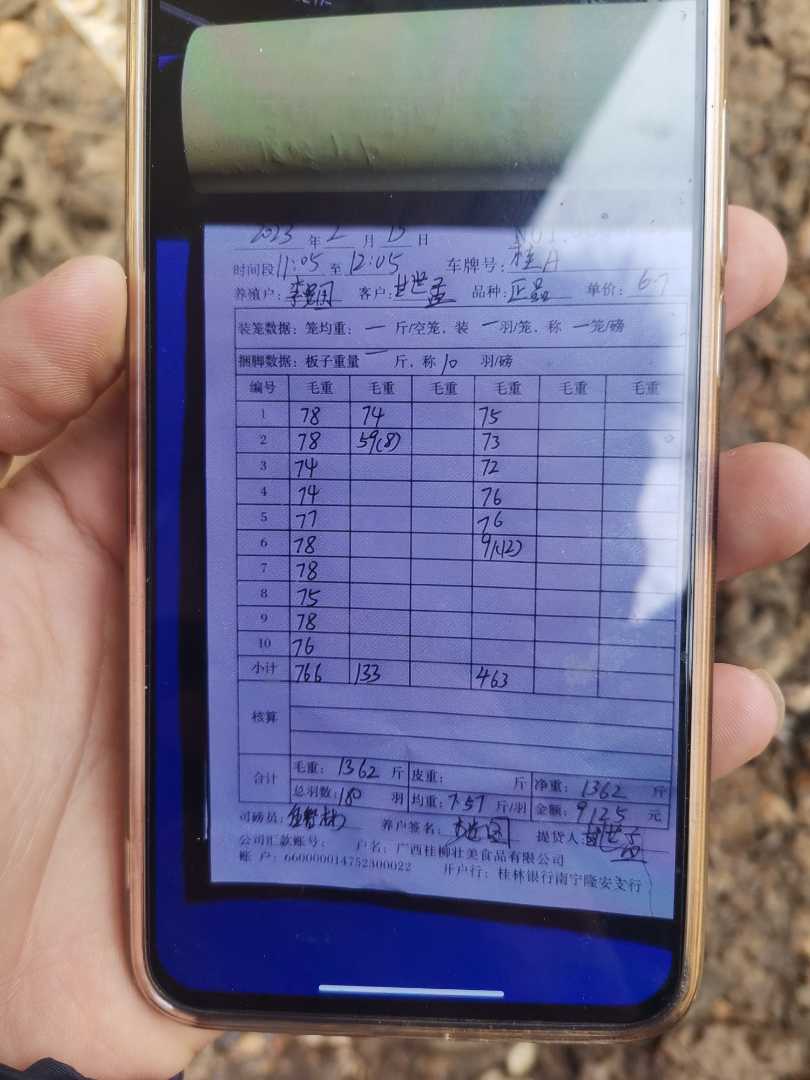 2023 年 2 月 15 日
时间段 11:05 至 12:05 车牌号: 桂A
养殖户: 客户: 甘世孟 品种: 正品 单价: 6.7
装笼数据: 笼均重: 一 斤/空笼, 装 一 羽/笼, 称 一 笼/磅
捆脚数据: 板子重量 一 斤, 称 10 羽/磅
编号 毛重 毛重 毛重 毛重 毛重 毛重
1 78 74 75
2 78 59(8) 73
3 74 72
4 74 76
5 77 76
6 78 91(12)
7 78
8 75
9 78
10 76
小计 766 133 463
核算
合计 毛重: 1362 斤 皮重: 斤 净重: 1362 斤
总羽数: 180 羽 均重: 7.57 斤/羽 金额: 9125 元
司磅员: 养户签名: 提货人:
公司汇款账号: 户名: 广西桂柳壮美食品有限公司
账 户: 660000014752300022 开户行: 桂林银行南宁隆安支行